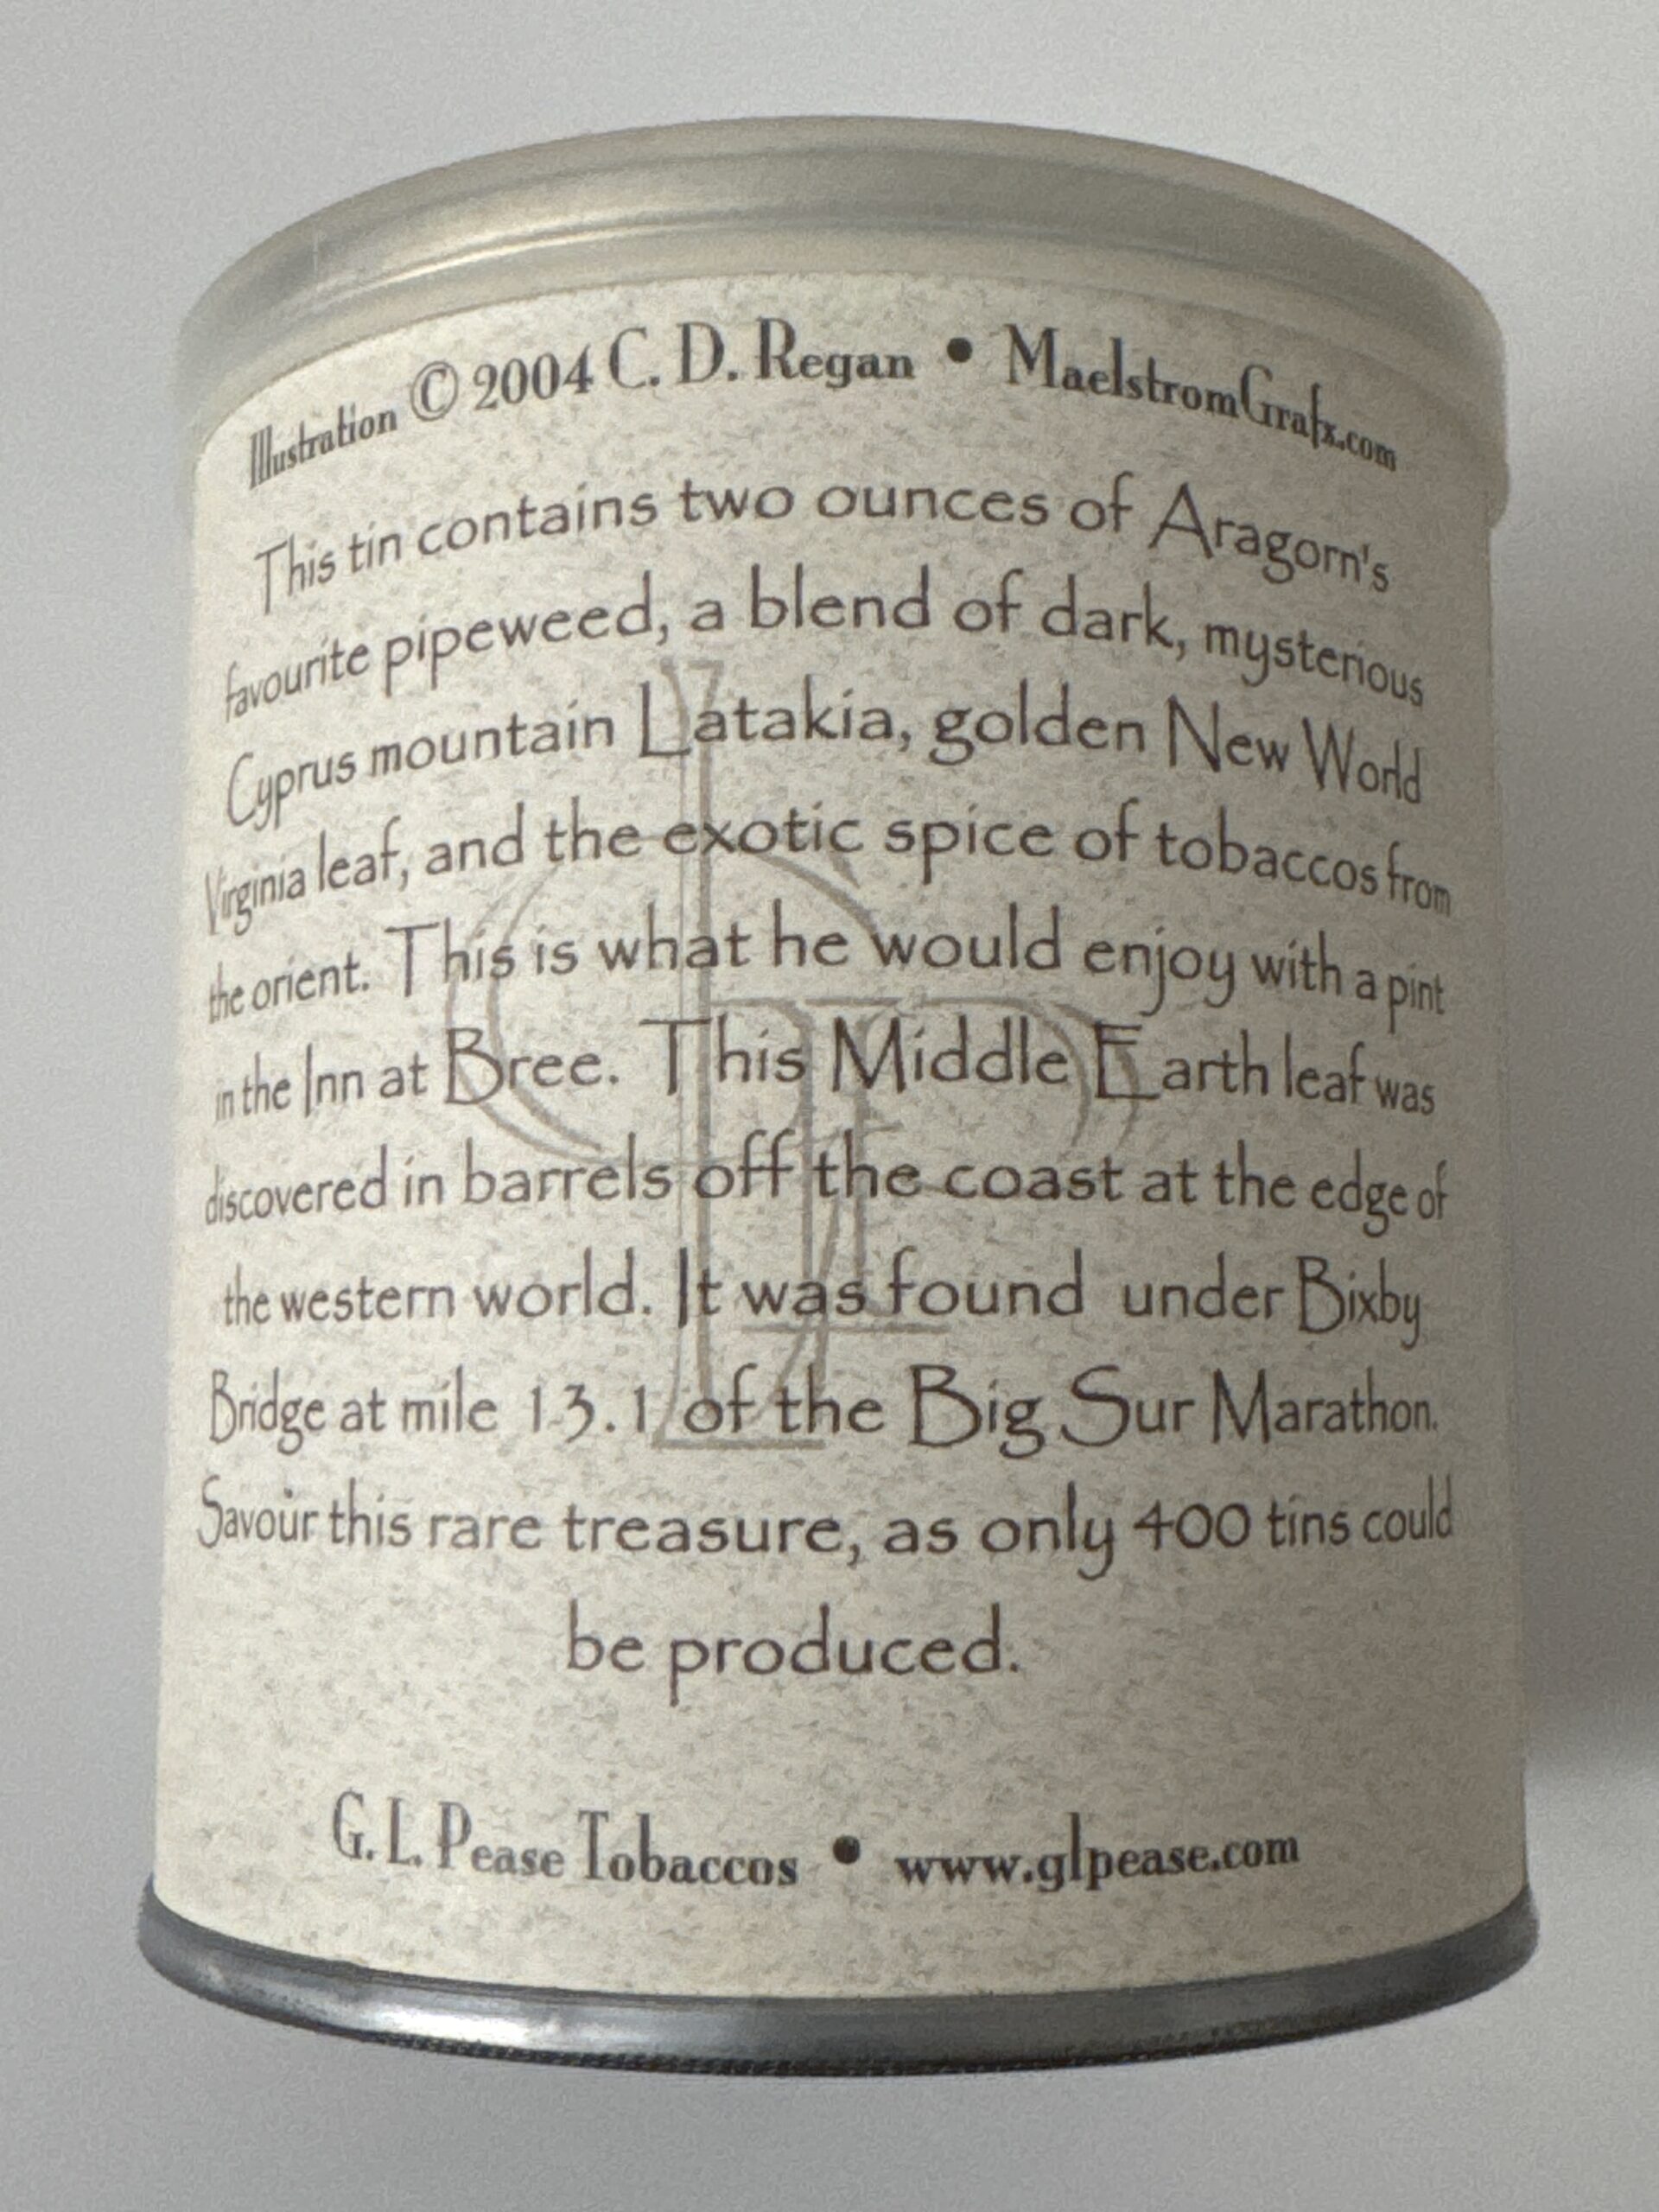 Illustration © 2004 C. D. Regan • MaelstromGrafx.com
This tin contains two ounces of Aragorn's
favourite pipeweed, a blend of dark, mysterious
Cyprus mountain Latakia, golden New World
Virginia leaf, and the exotic spice of tobaccos from
the orient. This is what he would enjoy with a pint
in the Inn at Bree. This Middle Earth leaf was
discovered in barrels off the coast at the edge of
the western world. It was found under Bixby
Bridge at mile 13.1 of the Big Sur Marathon.
Savour this rare treasure, as only 400 tins could
be produced.
G. L. Pease Tobaccos • www.glpease.com